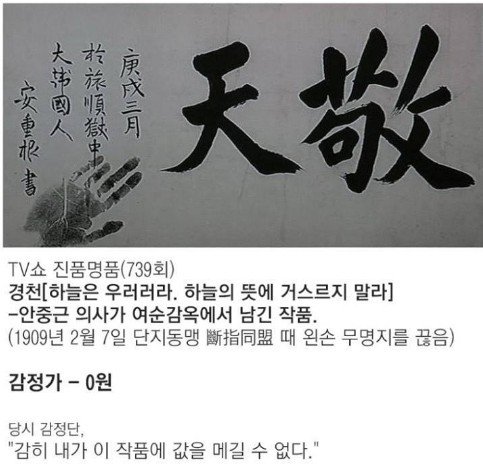 敬天
庚戌三月
於旅順獄中
大韓國人
安重根書
TV쇼 진품명품(739회)
경천[하늘은 우러러라. 하늘의 뜻에 거스르지 말라]
-안중근 의사가 여순감옥에서 남긴 작품.
(1909년 2월 7일 단지동맹 斷指同盟 때 왼손 무명지를 끊음)
감정가 - 0원
당시 감정단,
"감히 내가 이 작품에 값을 메길 수 없다."